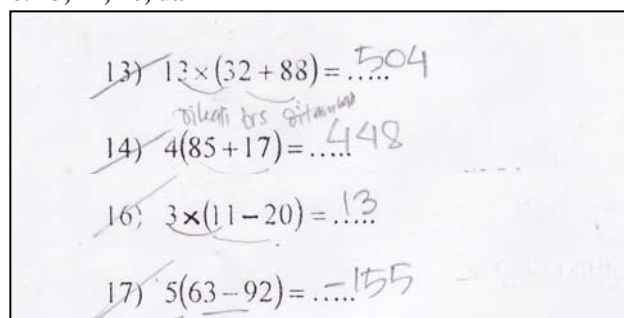 13) 13×(32 + 88) = ..... 504
dikali trs ditambah
14) 4(85 + 17) = ..... 448
16) 3×(11 – 20) = ..... 13
17) 5(63 – 92) = ..... –155